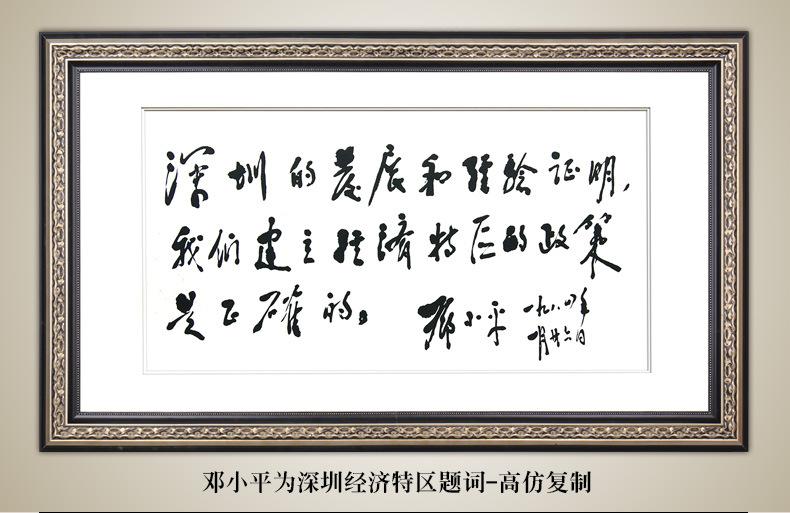 深圳的发展和经验证明，
我们建立经济特区的政策
是正确的。
邓小平
一九八四年
一月廿六日
邓小平为深圳经济特区题词-高仿复制